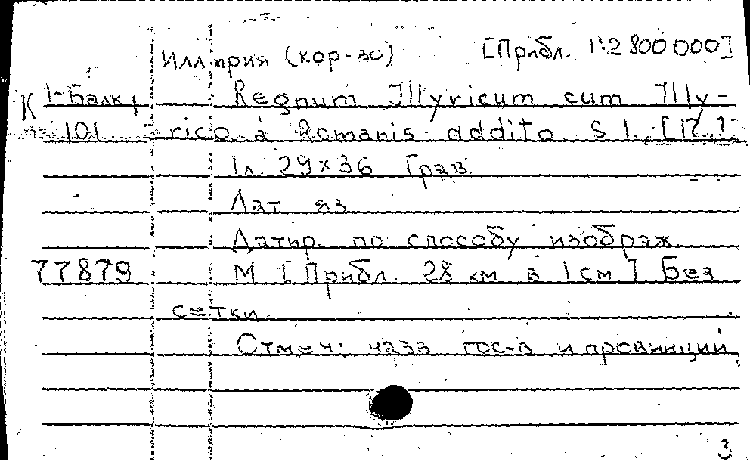 Иллирия (кор-во) [Прибл. 1:2 800 000]
К 1-Балк, Regnum Illyricum cum Illy-
101 rico a Romanis addito S.l., [17..]
1 л. 29×36 Грав.
Лат. яз.
Датир. по способу изображ.
77879 М [Прибл. 28 км в 1 см] Без
сетки.
Отмеч: назв гос-в и провинций
3